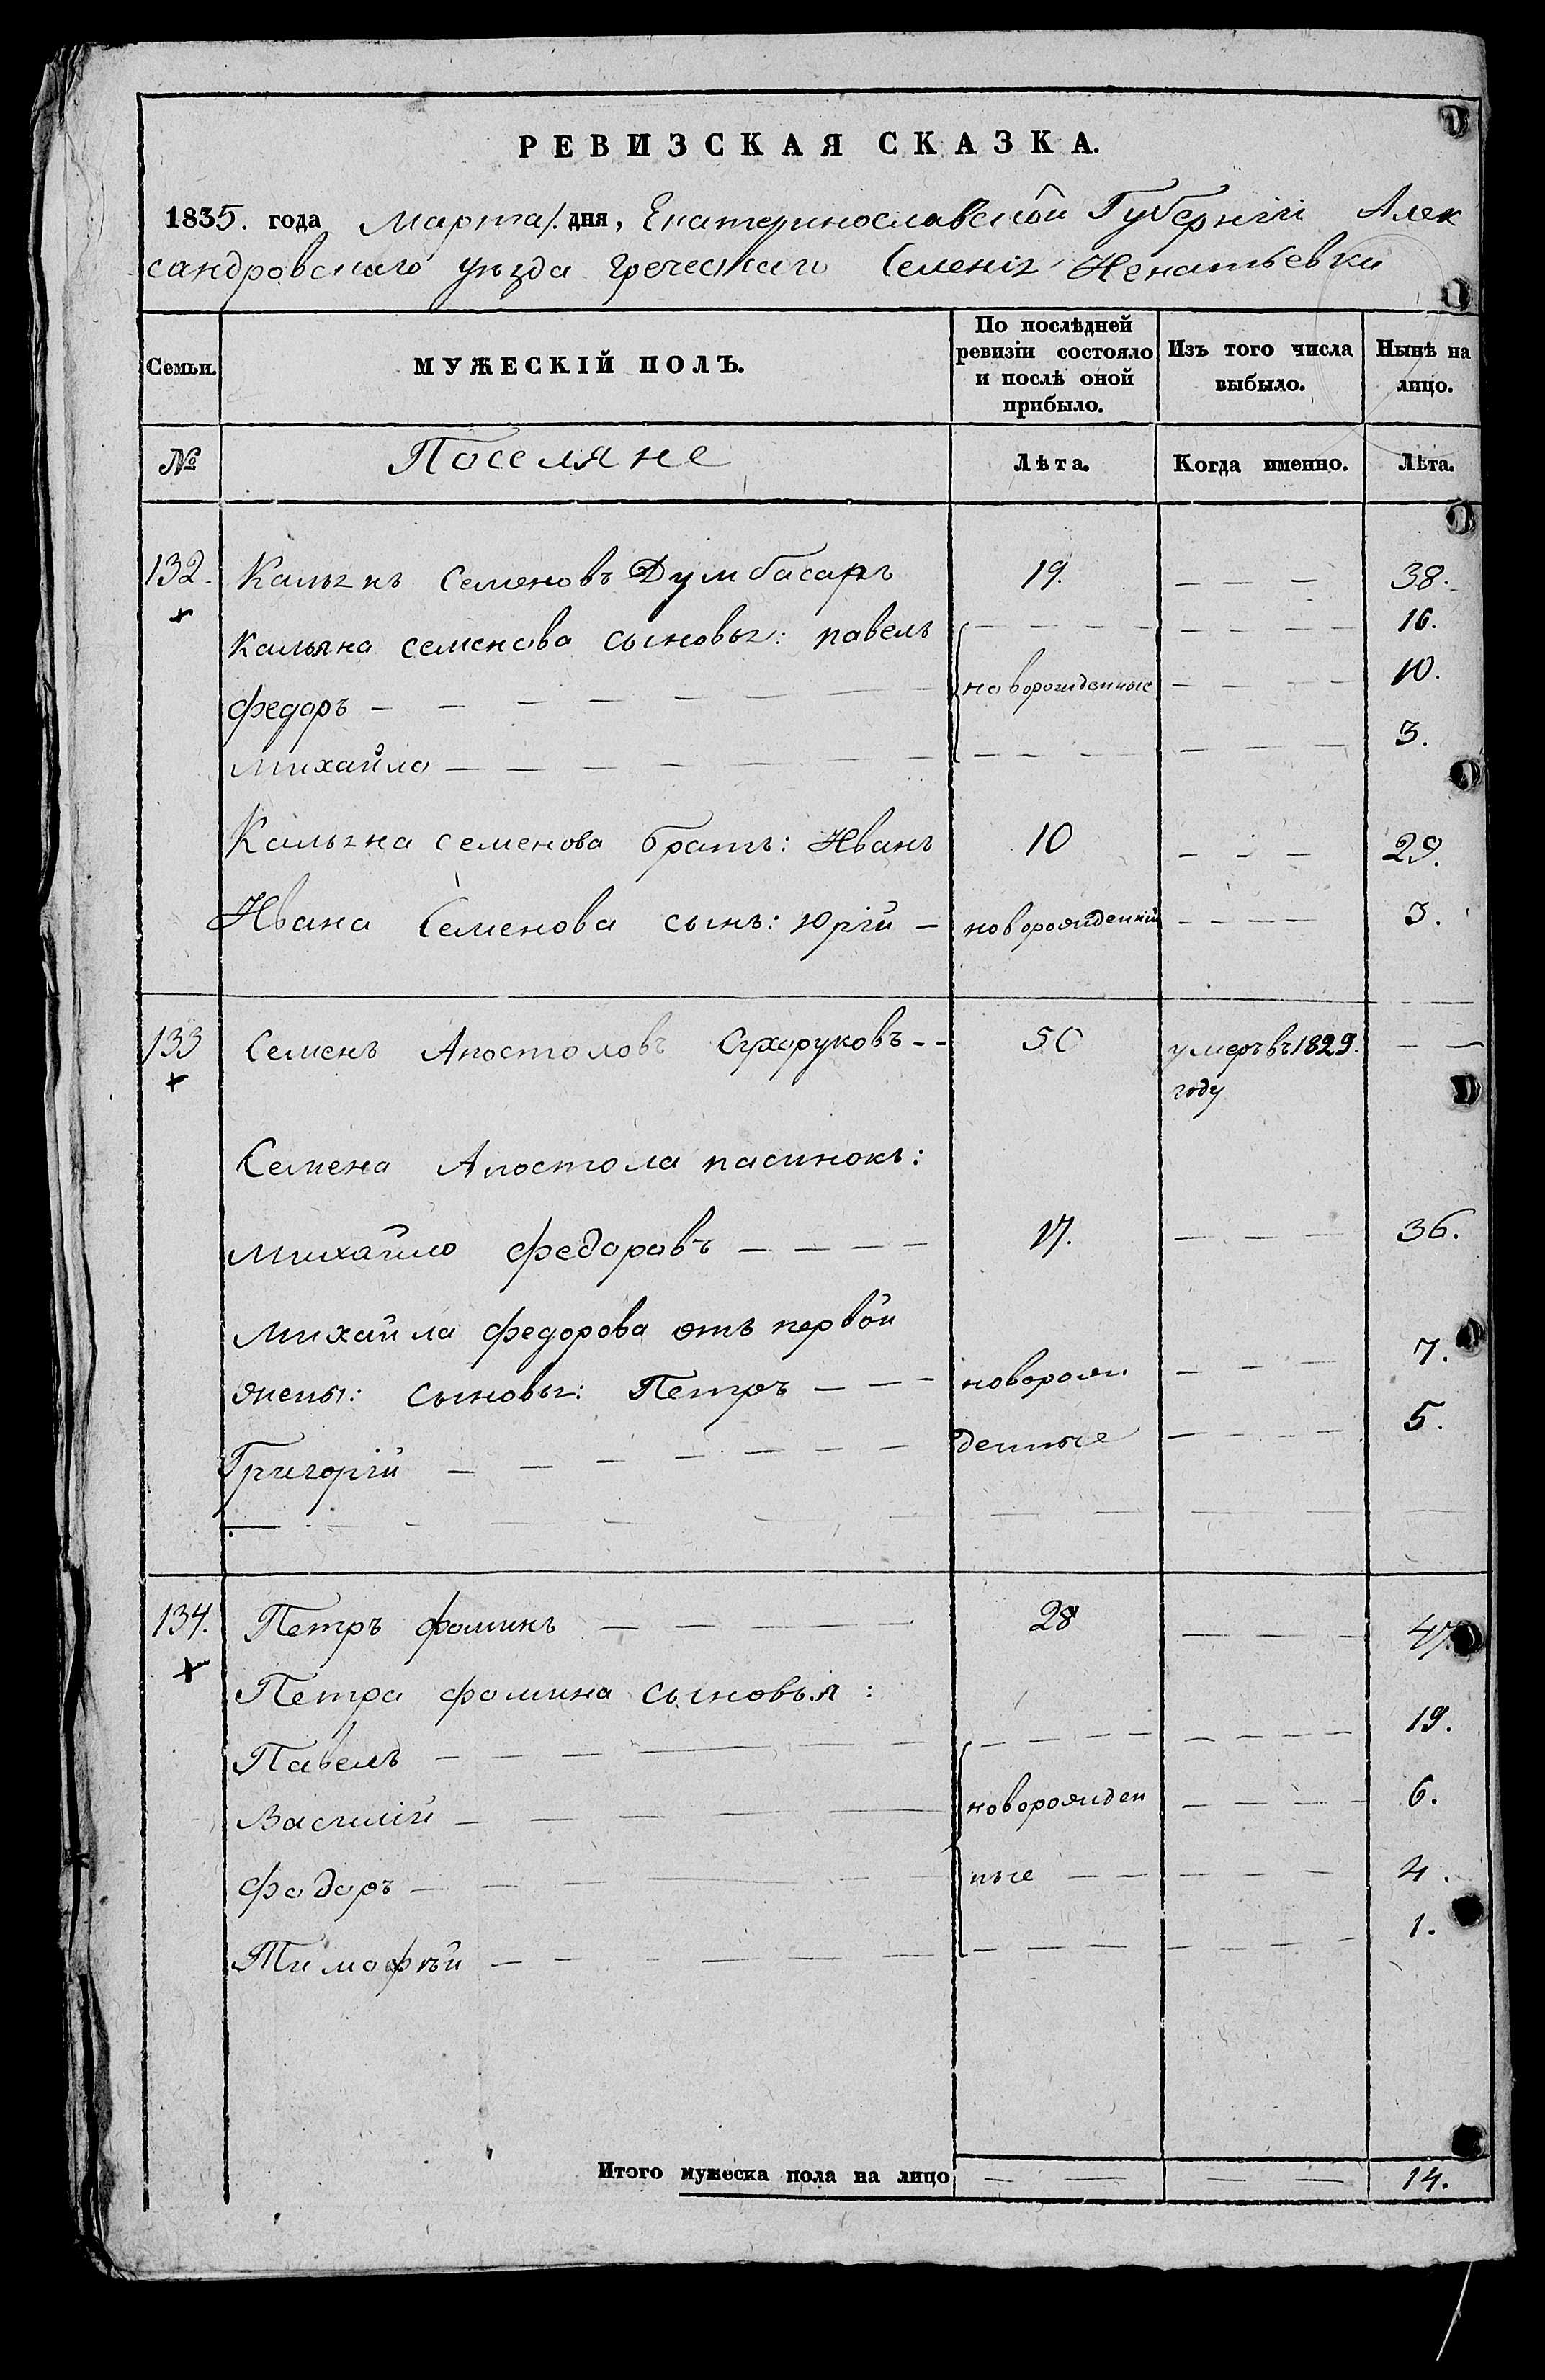 РЕВИЗСКАЯ СКАЗКА.
1835. года Марта 1. дня, Екатеринославской Губернiи Алек
сандровскаго уѣзда греческаго Селенiя Игнатьевки
Семьи. МУЖЕСКIЙ ПОЛЪ. По послѣдней ревизiи состояло и послѣ оной прибыло. Изъ того числа выбыло. Нынѣ на лицо.
№ Поселяне Лѣта. Когда именно. Лѣта.
132. Кальянъ Семеновъ Думбасаръ 19. — — — 38.
Кальяна семенова сыновья: павелъ — — — — — — — — 16.
федоръ — — — — — — новорожденные — — — — 10.
михайла — — — — — — — — — — — — — — 3.
Кальяна семенова братъ: Иванъ 10 — — — 29.
Ивана Семенова сынъ: Юрiй — новорожденный — — — — 3.
133 Семенъ Апостоловъ Сухоруковъ - - 50 умеръ въ 1829. — —
году
Семена Апостола пасинокъ:
михайло федоровъ — — — — 17. — — — 36.
михайла федорова отъ первой
жены: сыновья: Петръ — — — новорож — — — 7.
Григорiй — — — — — — — денные — — — — 5.
134. Петръ фоминъ — — — — — 28 — — — 47.
Петра фомина сыновья:
Павелъ — — — — — — — — — — — — — — 19.
Василiй — — — — — новорожден — — — — 6.
федоръ — — — — — — ные — — — — — — 4.
Тимофѣй — — — — — — — — — — — — — — 1.
Итого мужеска пола на лицо — — — — 14.